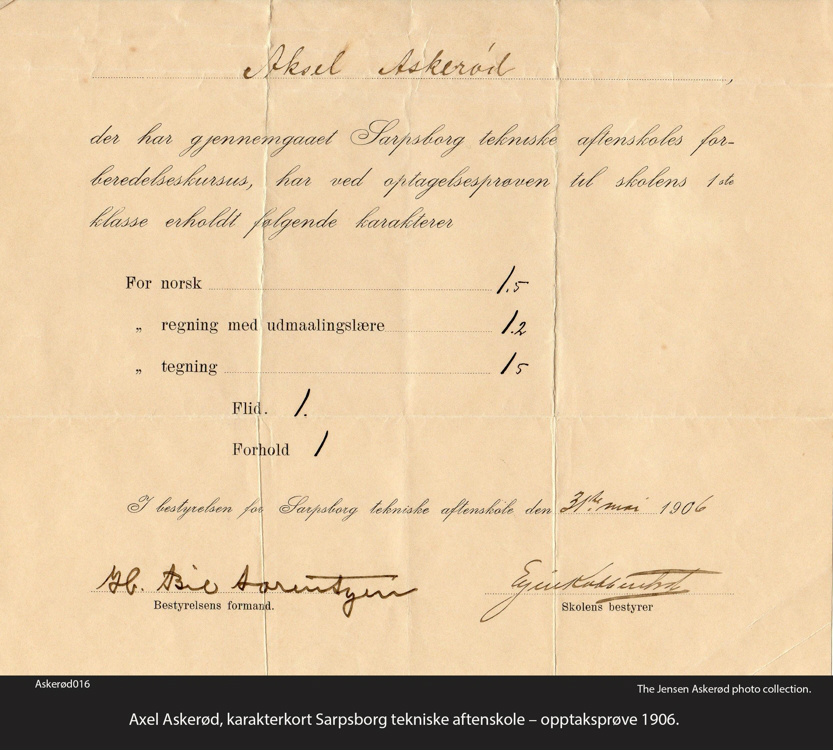 Aksel Askerød,
der har gjennemgaaet Sarpsborg tekniske aftenskoles for-
beredelseskursus, har ved optagelsesprøven til skolens 1ste
klasse erholdt følgende karakterer
For norsk 1.5
„ regning med udmaalingslære 1.2
„ tegning 15
Flid. 1.
Forhold 1
I bestyrelsen for Sarpsborg tekniske aftenskole den 31te mai 1906
Bestyrelsens formand.
Skolens bestyrer
Askerød016
The Jensen Askerød photo collection.
Axel Askerød, karakterkort Sarpsborg tekniske aftenskole – opptaksprøve 1906.